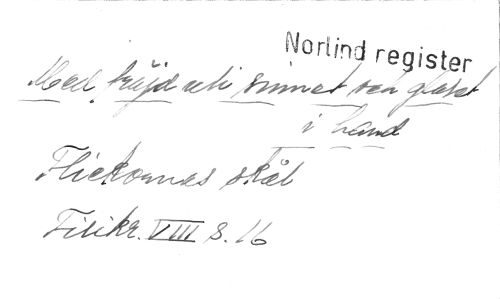 Norlind register
Med fröjd uti sinnet och glaset
i hand
Flickornas skål
Filikr. VIII s. 16